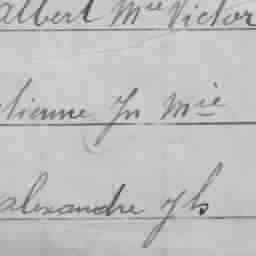 albert Mce Victor
tienne Jn Mie
alexandre